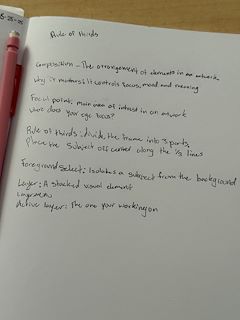 5-25-25
Rule of thirds
Composition - The arrangement of elements in an artwork.
Why it matters: it controls focus, mood and meaning
Focal point: main area of intrest in an artwork
where does your eye focus?
Rule of thirds: divide the frame into 3 parts,
Place the subject off center along the 1/3 lines
Foreground Select: Isolates a subject from the background
Layer: A stacked visual element
Layer menu
Active Layer: The one your working on